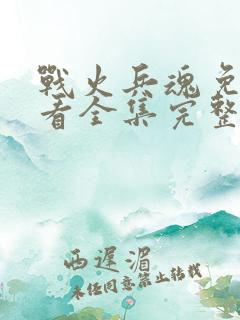 戰火兵魂免
看全集完整
西遲湄
未经同意禁止转载